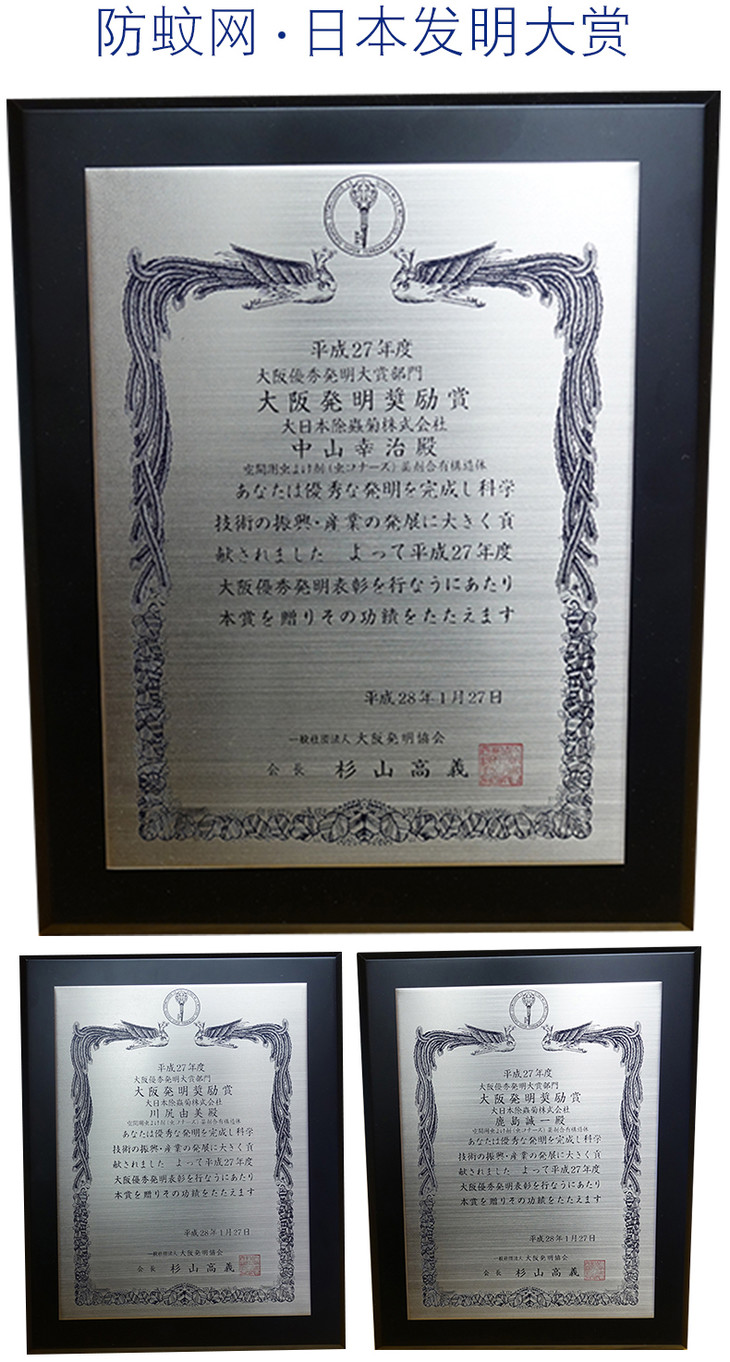 防蚊网·日本发明大赏
平成27年度
大阪優秀発明大賞部門
大阪発明奨励賞
大日本除蟲菊株式会社
中山幸治殿
空間用虫よけ剤(虫コナーズ)薬剤含有構造体
あなたは優秀な発明を完成し科学
技術の振興·産業の発展に大きく貢
献されました よって平成27年度
大阪優秀発明表彰を行なうにあたり
本賞を贈りその功績をたたえます
平成28年1月27日
一般社団法人 大阪発明協会
会長 杉山高義
平成27年度
大阪優秀発明大賞部門
大阪発明奨励賞
大日本除蟲菊株式会社
川尻由美殿
空間用虫よけ剤(虫コナーズ)薬剤含有構造体
あなたは優秀な発明を完成し科学
技術の振興·産業の発展に大きく貢
献されました よって平成27年度
大阪優秀発明表彰を行なうにあたり
本賞を贈りその功績をたたえます
平成28年1月27日
一般社団法人 大阪発明協会
会長 杉山高義
平成27年度
大阪優秀発明大賞部門
大阪発明奨励賞
大日本除蟲菊株式会社
鹿島誠一殿
空間用虫よけ剤(虫コナーズ)薬剤含有構造体
あなたは優秀な発明を完成し科学
技術の振興·産業の発展に大きく貢
献されました よって平成27年度
大阪優秀発明表彰を行なうにあたり
本賞を贈りその功績をたたえます
平成28年1月27日
一般社団法人 大阪発明協会
会長 杉山高義